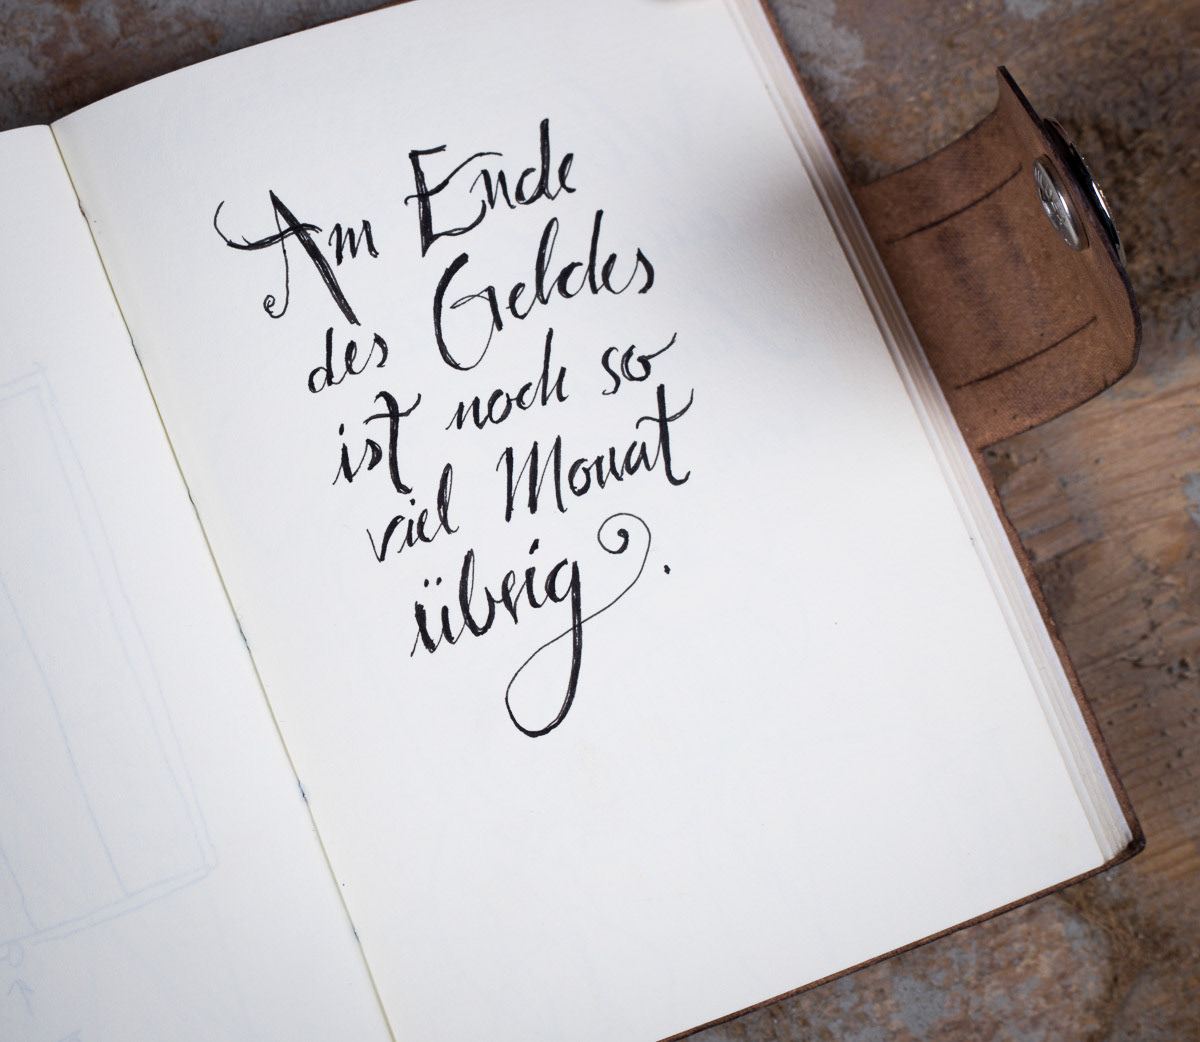 Am Ende
des Geldes
ist noch so
viel Monat
übrig.